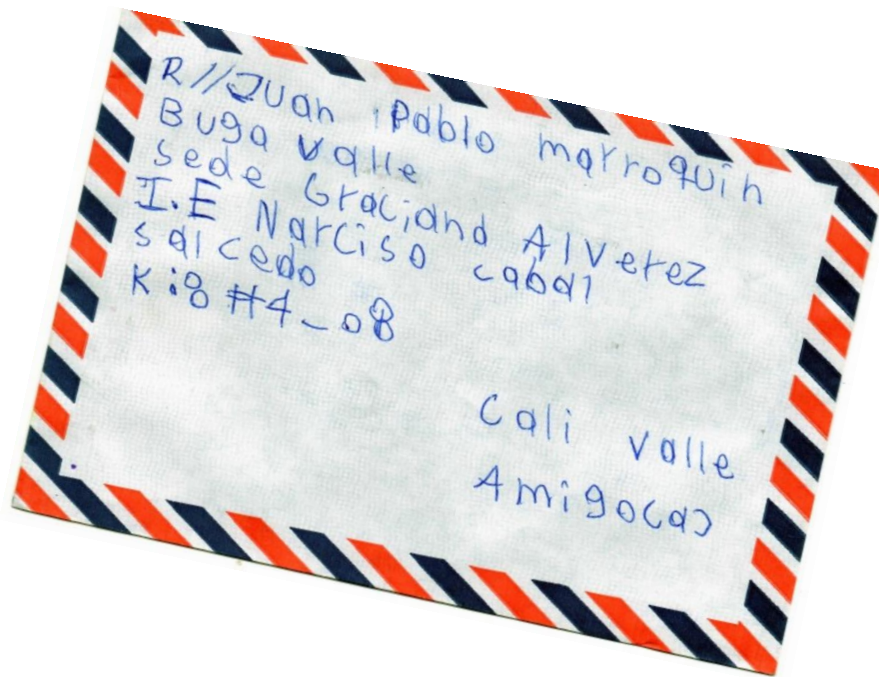 R//Juan Pablo marroquin
Buga valle
sede Graciand Alverez
I.E Narciso cabal
salcedo
K:8 #4_08
Cali valle
Amigo(a)